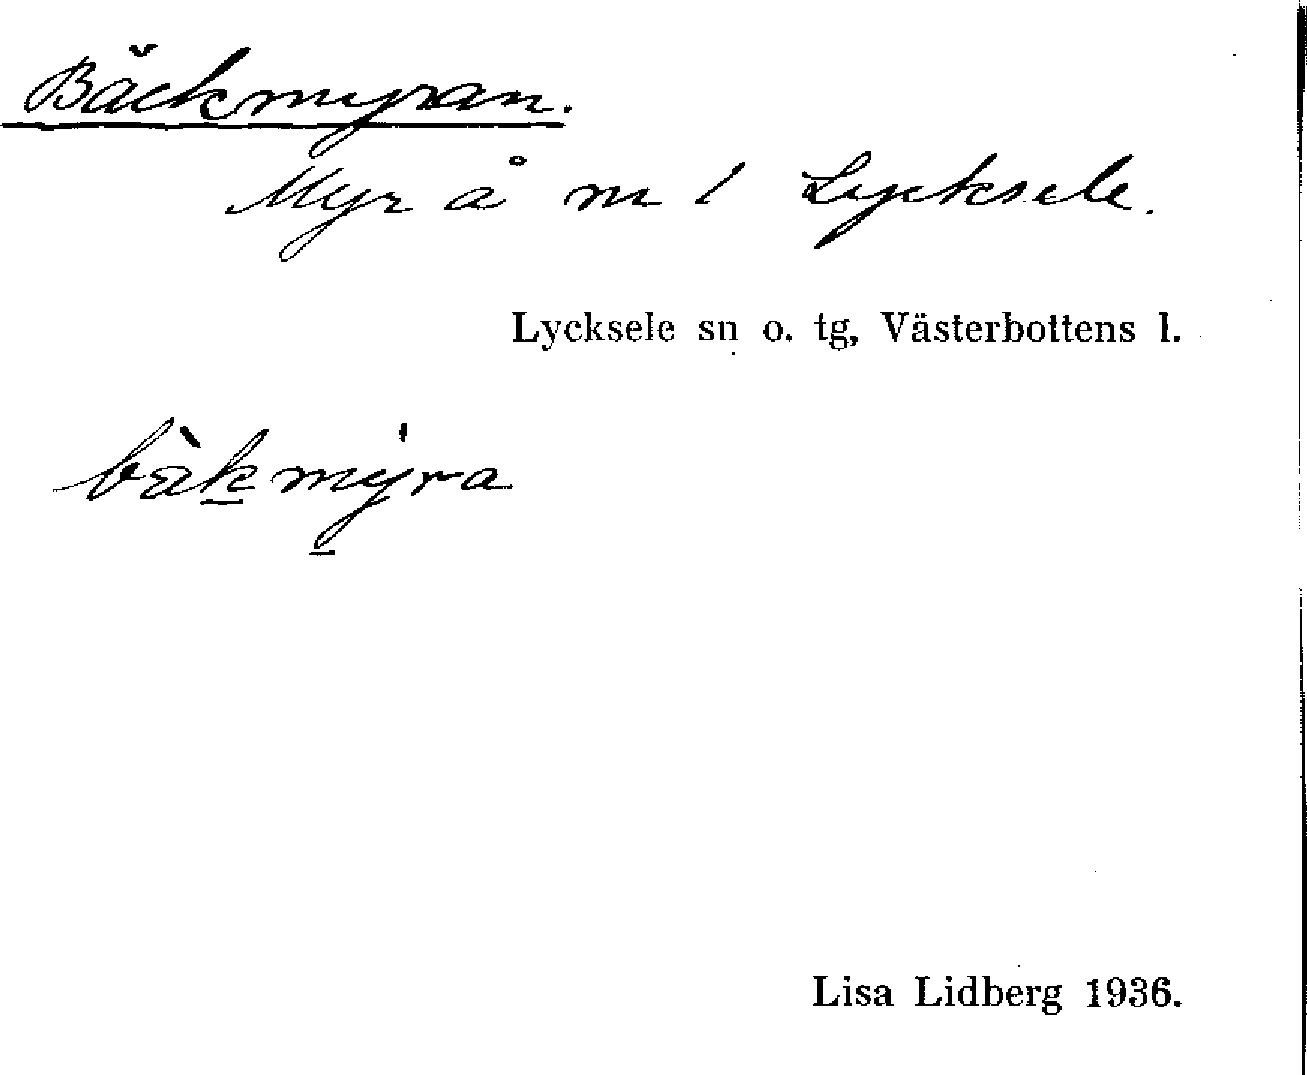 Bäckmyran.
Myr å m 1 Lycksele.
Lycksele sn o. tg, Västerbottens l.
bàkmyra
Lisa Lidberg 1936.